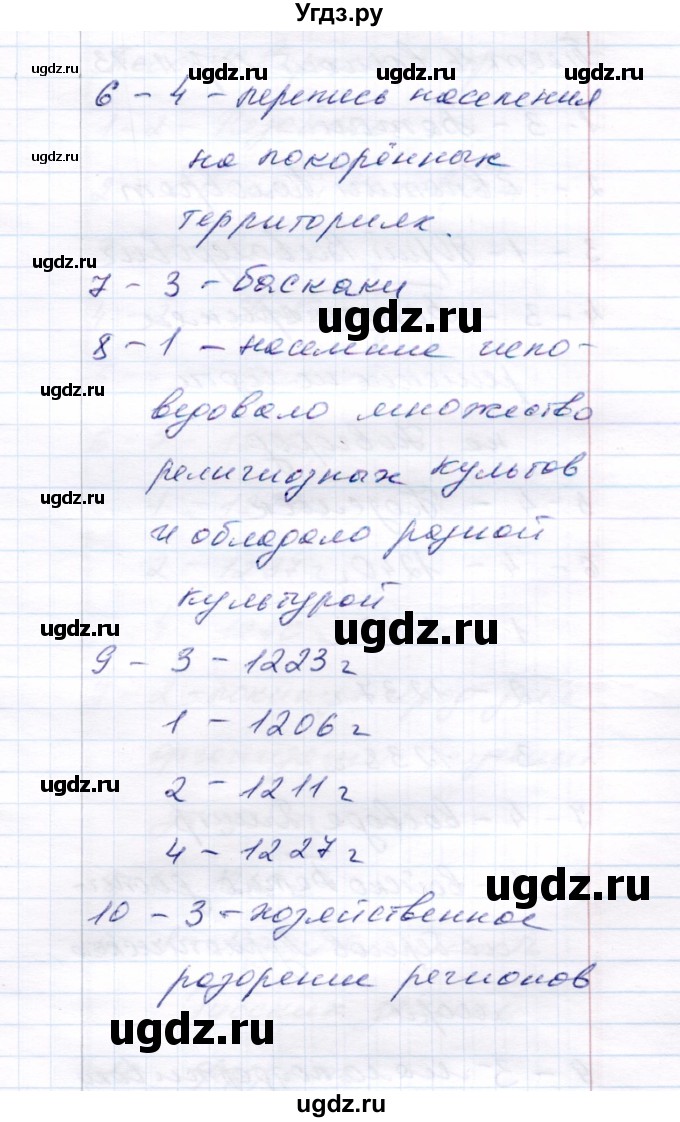 Угдз.ру
ugdz.ru ugdz.ru ugdz.ru
6 - 4 - перепись населения
ugdz.ru на покорённых
территориях.
ugdz.ru
7 - 3 - баскаки
ugdz.ru
8 - 1 - население испо-
ugdz.ru
ведовало множество
религиозных культов
ugdz.ru
и обладало разной
культурой
ugdz.ru ugdz.ru
9 - 3 - 1223 г
1 - 1206 г
ugdz.ru
2 - 1211 г
4 - 1227 г
ugdz.ru
10 - 3 - хозяйственное
разорение регионов
ugdz.ru
ugdz.ru